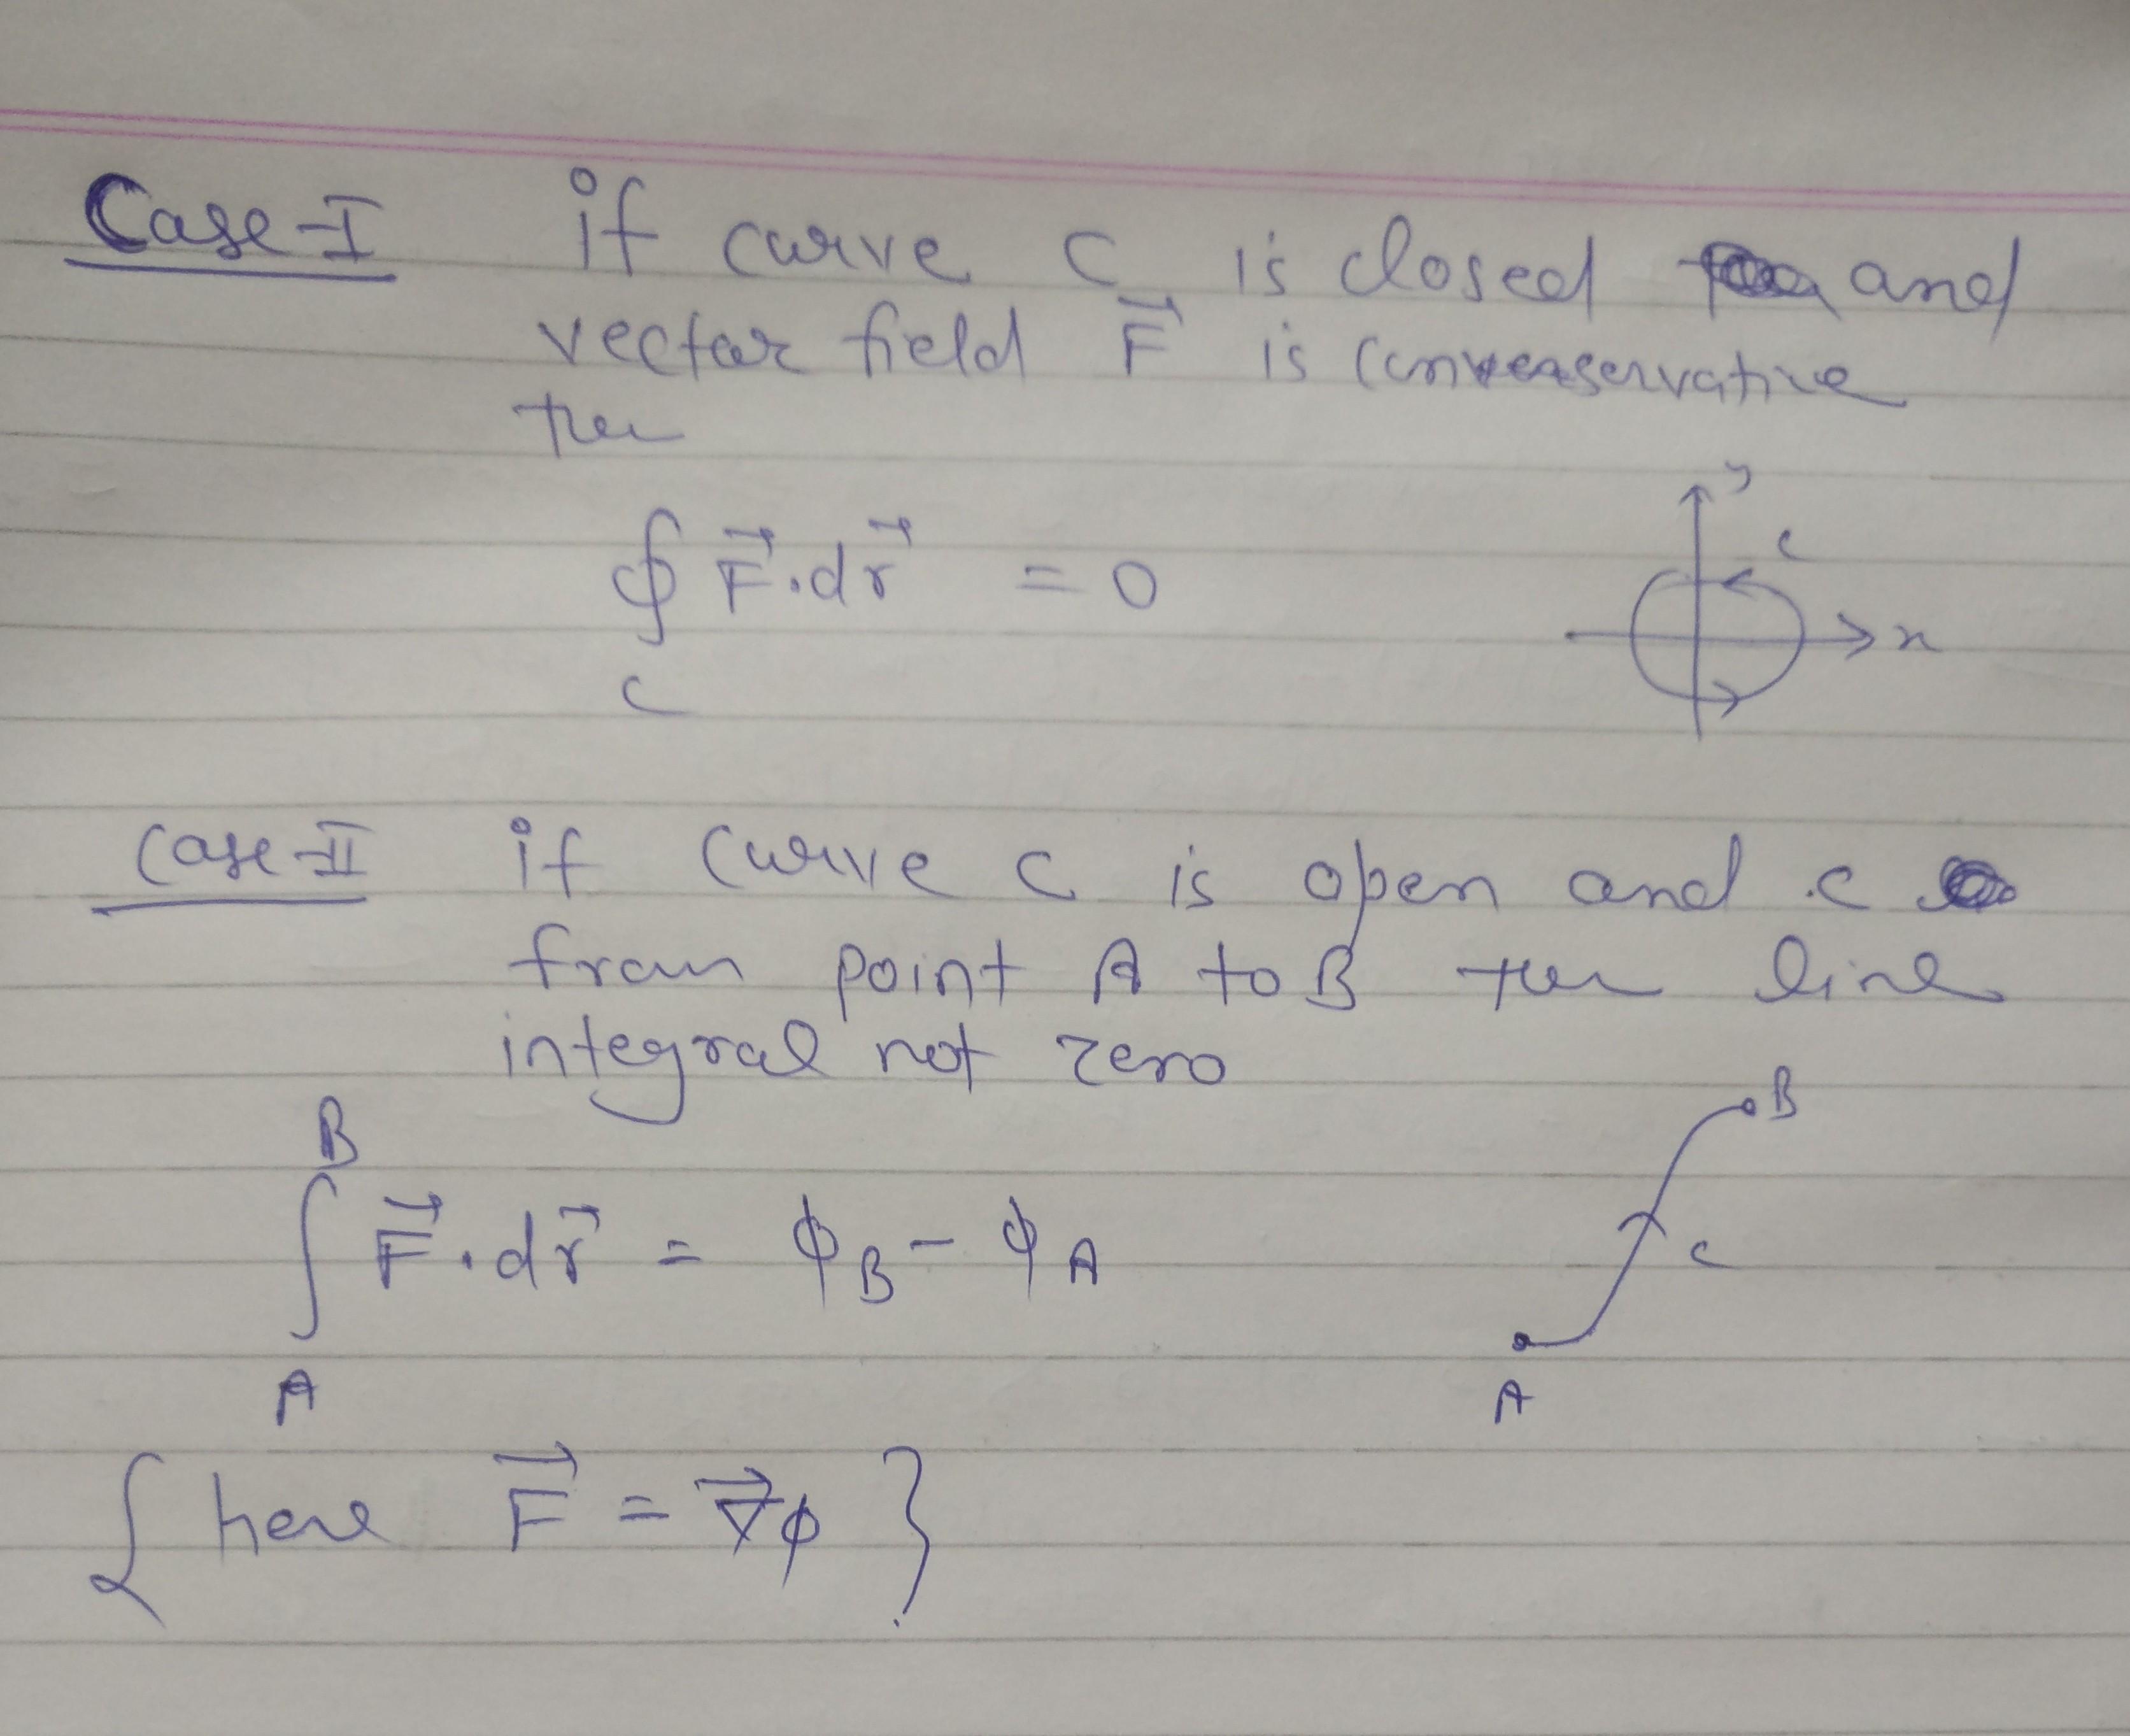 Case-I if curve C is closed and
vector field F⃗ is convenservative
then
∮ F⃗.dr⃗ = 0
C
y
c
x
Case-II if curve C is open and c
from point A to B then line
integral not zero
B
∫ F⃗.dr⃗ = ϕB - ϕA
A
B
c
A
{ here F⃗ = ∇⃗ϕ }